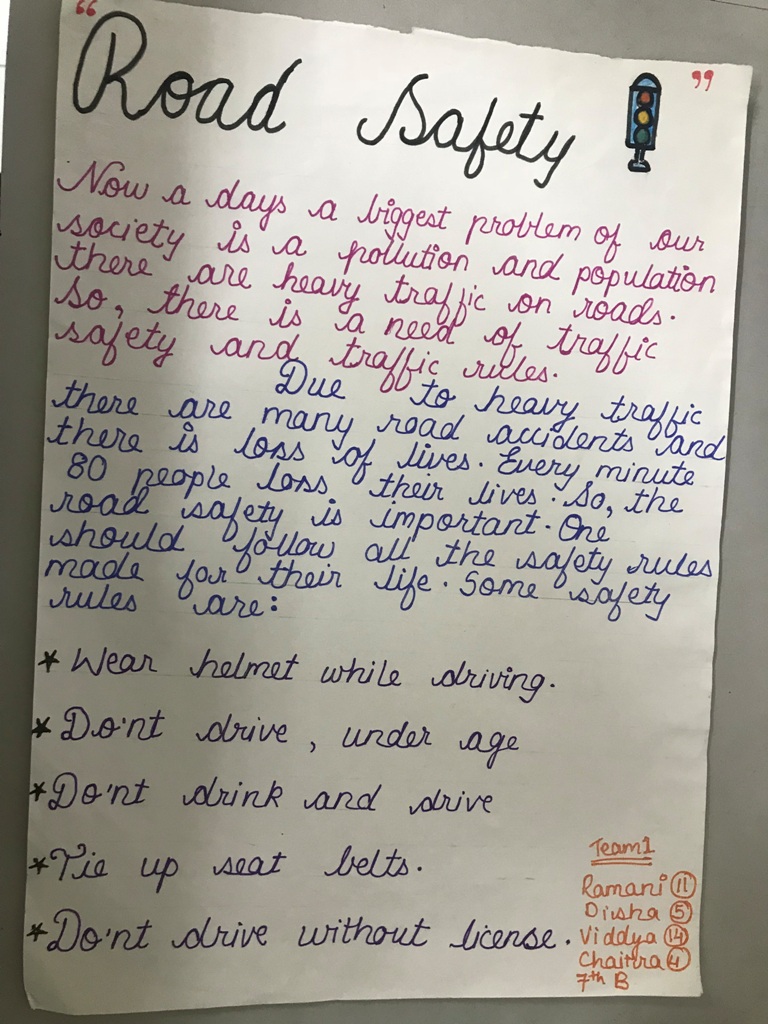 " Road Safety "
Now a days a biggest problem of our
society is a pollution and population
there are heavy traffic on roads.
So, there is a need of traffic
safety and traffic rules.
Due to heavy traffic
there are many road accidents and
there is loss of lives. Every minute
80 people loss their lives. So, the
road safety is important. One
should follow all the safety rules
made for their life. Some safety
rules are:
* Wear helmet while driving.
* Do'nt drive, under age
* Do'nt drink and drive
* Tie up seat belts.
* Do'nt drive without license.
Team 1
Ramani 11
Disha 5
Viddya 14
Chaitra 4
7th B